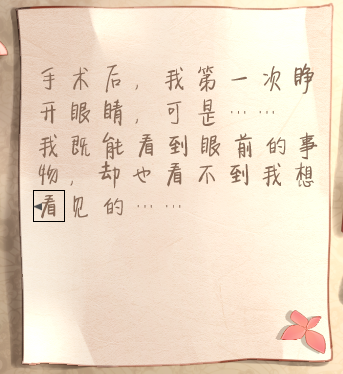 手术后，我第一次睁
开眼睛，可是……
我既能看到眼前的事
物，却也看不到我想
看见的……